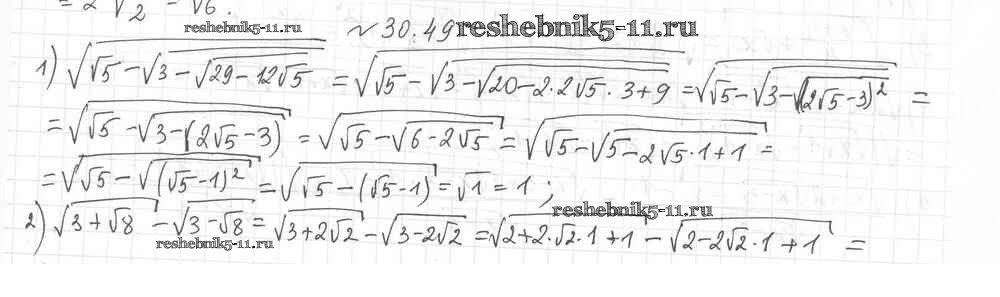 = 2√2 − √6.
reshebnik5-11.ru № 30.49 reshebnik5-11.ru
1) √(√5 − √(3 − √(29 − 12√5))) = √(√5 − √(3 − √(20 − 2·2√5·3 + 9))) = √(√5 − √(3 − √((2√5 − 3)²))) =
= √(√5 − √(3 − (2√5 − 3))) = √(√5 − √(6 − 2√5)) = √(√5 − √(5 − 2√5·1 + 1)) =
= √(√5 − √((√5 − 1)²)) = √(√5 − (√5 − 1)) = √1 = 1 ;
reshebnik5-11.ru
2) √(3 + √8) − √(3 − √8) = √(3 + 2√2) − √(3 − 2√2) = √(2 + 2·√2·1 + 1) − √(2 − 2√2·1 + 1) =
reshebnik5-11.ru